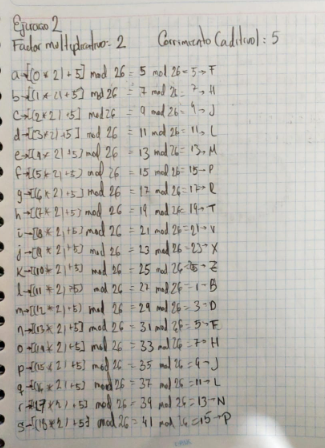 Ejercicio 2
Factor multiplicativo: 2 Corrimiento (aditivo): 5
a→[(0*2)+5] mod 26 = 5 mod 26 = 5→F
b→[(1*2)+5] mod 26 = 7 mod 26 = 7→H
c→[(2*2)+5] mod 26 = 9 mod 26 = 9→J
d→[(3*2)+5] mod 26 = 11 mod 26 = 11→L
e→[(4*2)+5] mod 26 = 13 mod 26 = 13→M
f→[(5*2)+5] mod 26 = 15 mod 26 = 15→P
g→[(6*2)+5] mod 26 = 17 mod 26 = 17→R
h→[(7*2)+5] mod 26 = 19 mod 26 = 19→T
i→[(8*2)+5] mod 26 = 21 mod 26 = 21→V
j→[(9*2)+5] mod 26 = 23 mod 26 = 23→X
k→[(10*2)+5] mod 26 = 25 mod 26 = 25→Z
l→[(11*2)+5] mod 26 = 27 mod 26 = 1→B
m→[(12*2)+5] mod 26 = 29 mod 26 = 3→D
n→[(13*2)+5] mod 26 = 31 mod 26 = 5→F
o→[(14*2)+5] mod 26 = 33 mod 26 = 7→H
p→[(15*2)+5] mod 26 = 35 mod 26 = 9→J
q→[(16*2)+5] mod 26 = 37 mod 26 = 11→L
r→[(17*2)+5] mod 26 = 39 mod 26 = 13→N
s→[(18*2)+5] mod 26 = 41 mod 26 = 15→P